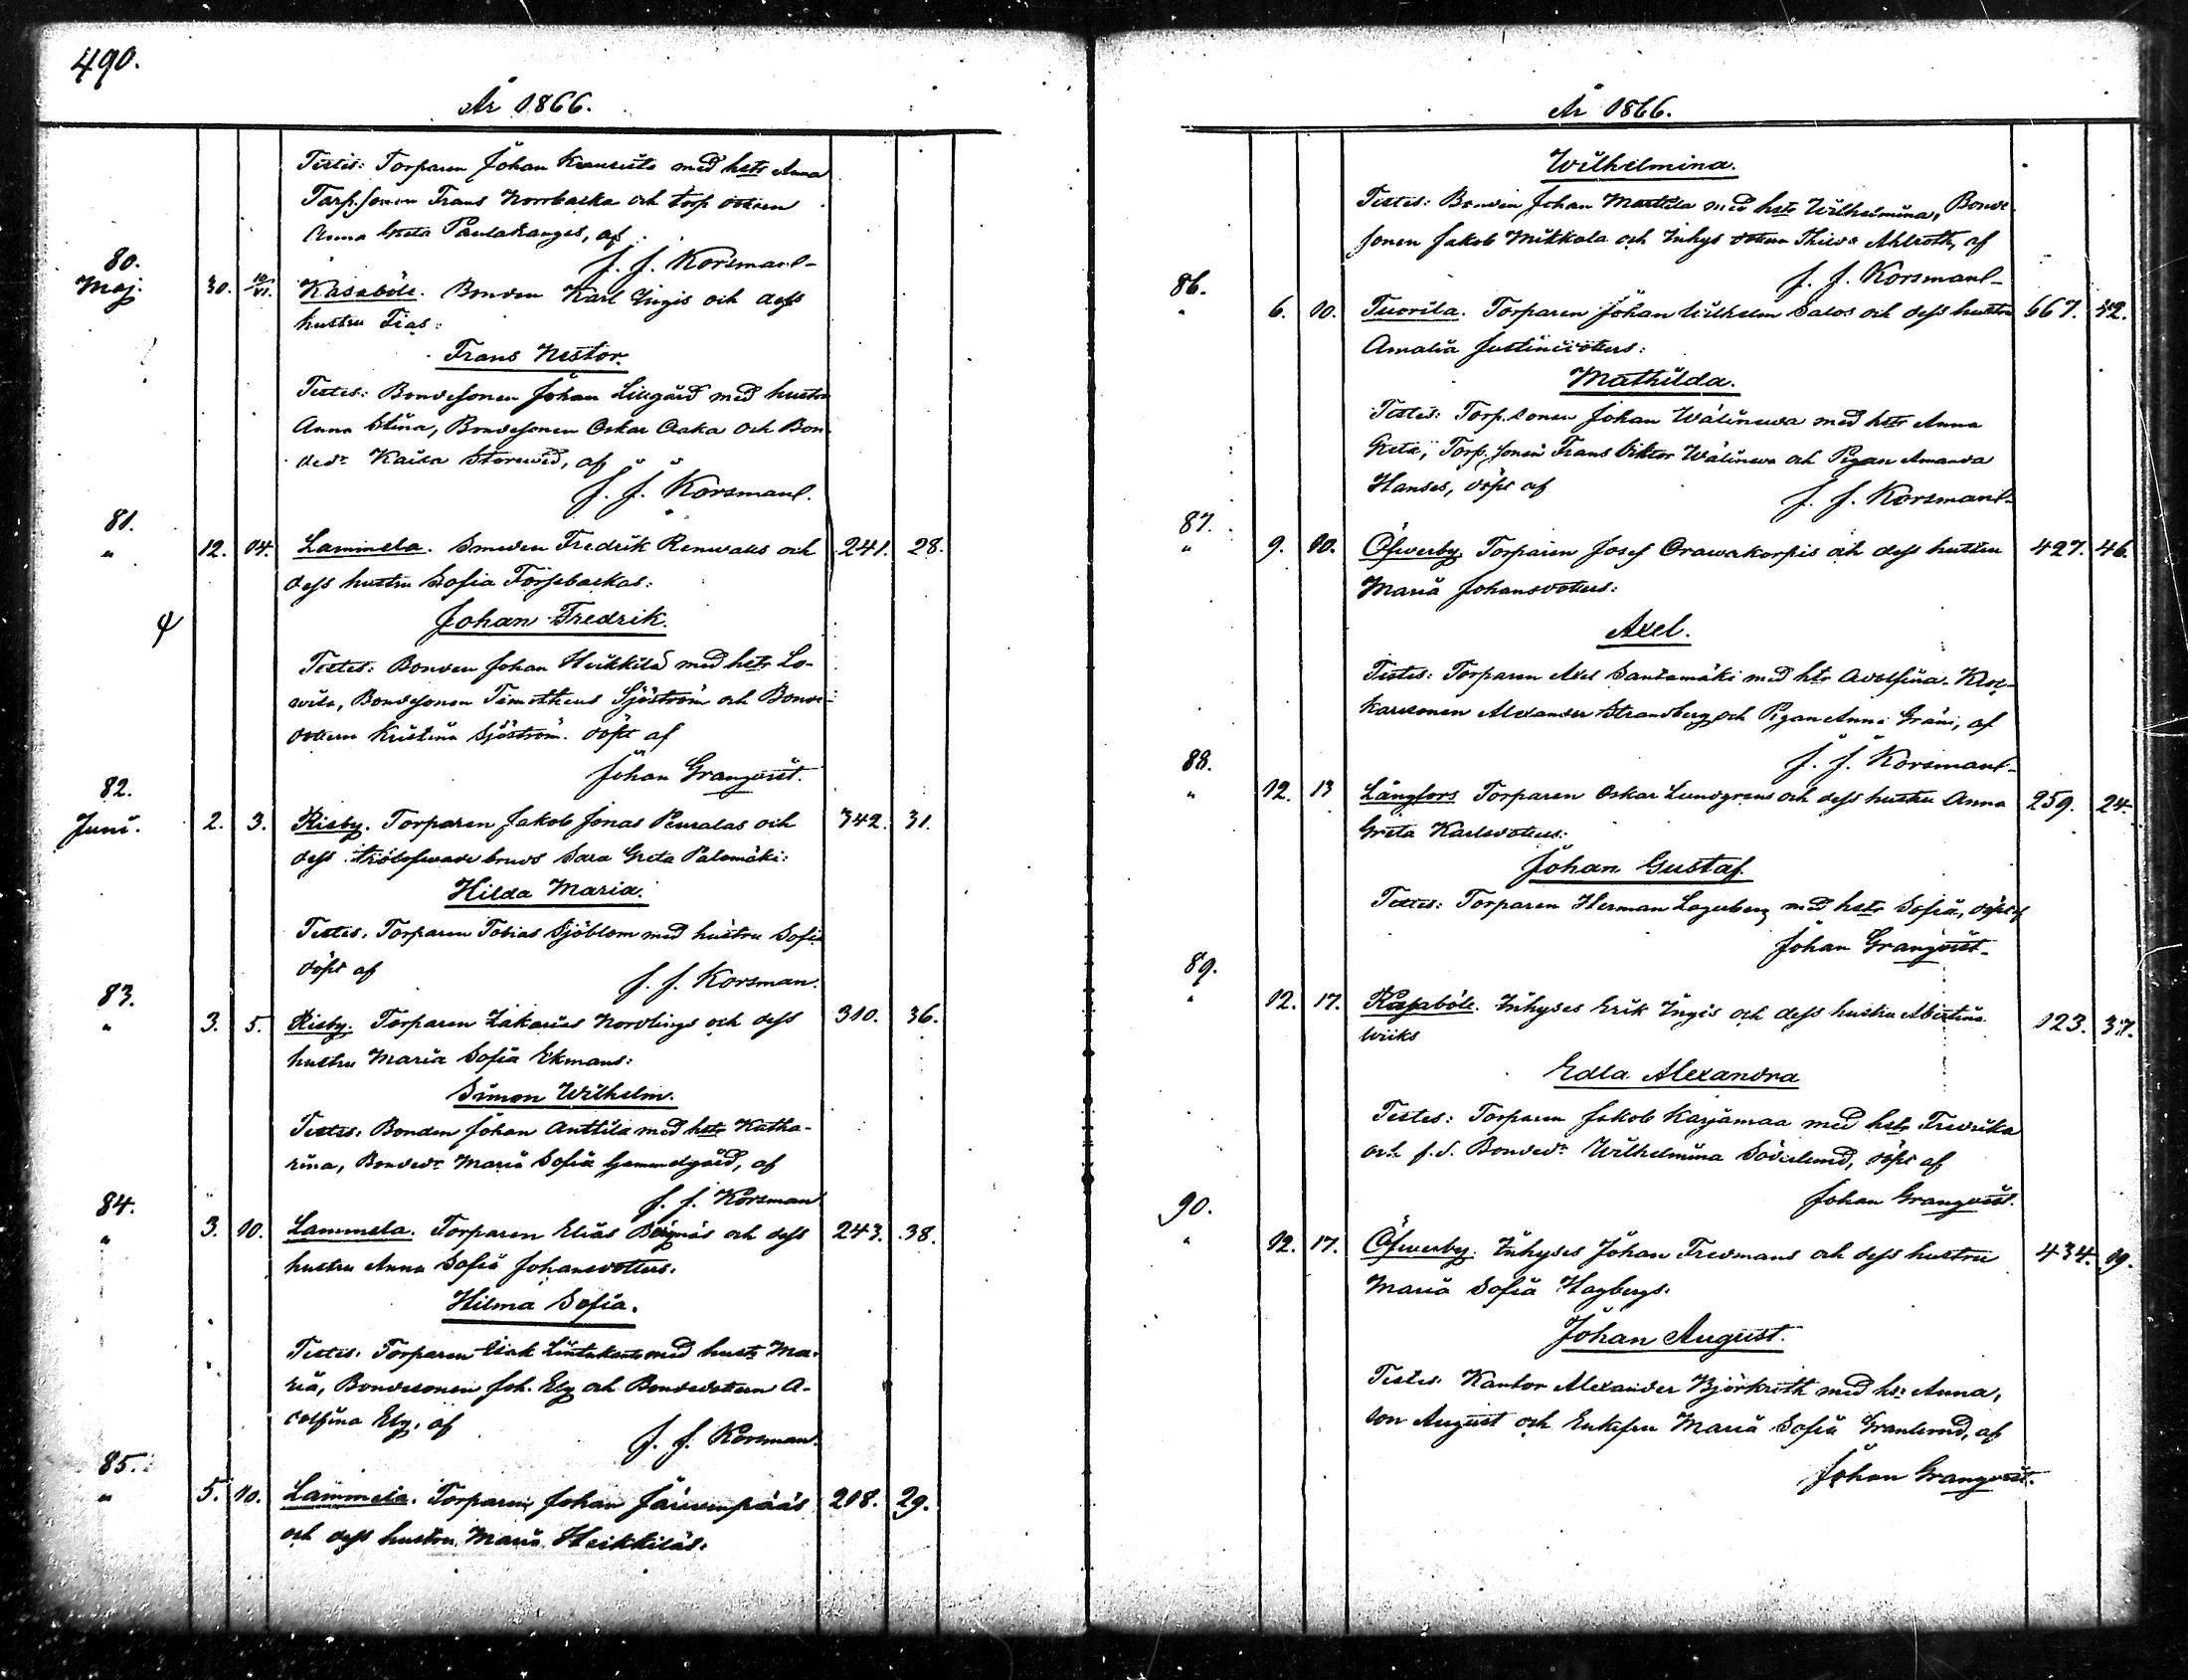 490.
År 1866.
Testes: Torparen Johan med hstr Anna
Torp.sonen Frans Norrbacka och torp dottern
Anna Greta, af
J. J. Korsman
80.
Maj. 30. 10/VI. Kasaböle. Bonden Karl Ingis och dess
hustru Fias:
Frans Nestor.
Testes: Bondesonen Johan Lillgård med hustru
Anna Stina, Bondesonen Oskar och Bon
dedr Kaisa, af
J. J. Korsman.
81.
" 12. 14. Lammela. Smeden Fredrik och 241. 28.
dess hustru Sofia:
Johan Fredrik.
Testes: Bonden Johan Heikkilä med hstr Lo-
visa, Bondesonen Timotheus Sjöström och Bonde
dottern Kristina Sjöström. döpt af
Johan Granqvist.
82.
Juni. 2. 3. Risby. Torparen Jakob Jonas Peuralas och 342. 31.
dess trolofwade bruds Sara Greta Palomäki:
Hilda Maria.
Testes. Torparen Tobias Sjöblom med hustru Sofia
döpt af J. J. Korsman.
83.
" 3. 5. Risby. Torparen Zakarias Nordlings och dess 310. 36.
hustru Maria Sofia Ekmans:
Simon Wilhelm.
Testes: Bonden Johan Anttila med hstr Katha-
rina, Bondedr Maria Sofia Gammelgård, af
J. J. Korsman
84.
" 3. 10. Lammela. Torparen Elias och dess 243. 38.
hustru Anna Sofia Johansdotters.
Hilma Sofia.
Testes. Torparen med hustr Ma-
ria, Bondesonen Joh. Elg och Bondedottern A-
dolfina Elg, af
J. J. Korsman.
85.
" 5. 10. Lammela. Torparen Johan Järvenpääs 208. 29.
och dess hustru Maria Heikkiläs.
År 1866.
Wilhelmina.
Testes: Bonden Johan Mattila med hstr Wilhelmina, Bonde
sonen Jakob Mikkola och Inhys dottern Ahlroth, af
J. J. Korsman
86.
" 6. 10. Tuorila. Torparen Johan Wilhelm Salos och dess hustru 667. 42.
Amalia:
Mathilda.
Testes: Torp.sonen Johan med hstr Anna
Greta, Torp.sonen Frans Viktor och Pigan Amanda
Hanses, döpt af J. J. Korsman
87.
" 9. 10. Öfwerby. Torparen Josef Orawakorpis och dess hustru 427. 46.
Maria Johansdotters:
Axel.
Testes: Torparen Axel Santamäki med hstr Adolfina. Kloc-
karesonen Alexander Strandberg och Pigan Anna, af
J. J. Korsman
88.
" 12. 13 Långfors Torparen Oskar Lundgrens och dess hustru Anna 259. 24.
Greta Karlsdotters:
Johan Gustaf.
Testes: Torparen Herman Lagerberg med hstr Sofia, döpt af
Johan Granqvist
89.
" 12. 17. Kasaböle. Inhyses Erik Ingis och dess hustru Albertina 123. 37.
Wiiks
Edla Alexandra
Testes: Torparen Jakob Karjamaa med hstr Fredrika
och f.d. Bondedr Wilhelmina Söderlund, döpt af
Johan Granqvist.
90.
" 12. 17. Öfwerby. Inhyses Johan Fredmans och dess hustru 434. 19.
Maria Sofia Hagbergs:
Johan August.
Testes. Kantor Alexander med hs: Anna,
son August och Enkefru Maria Sofia Granlund, af
Johan Granqvist.